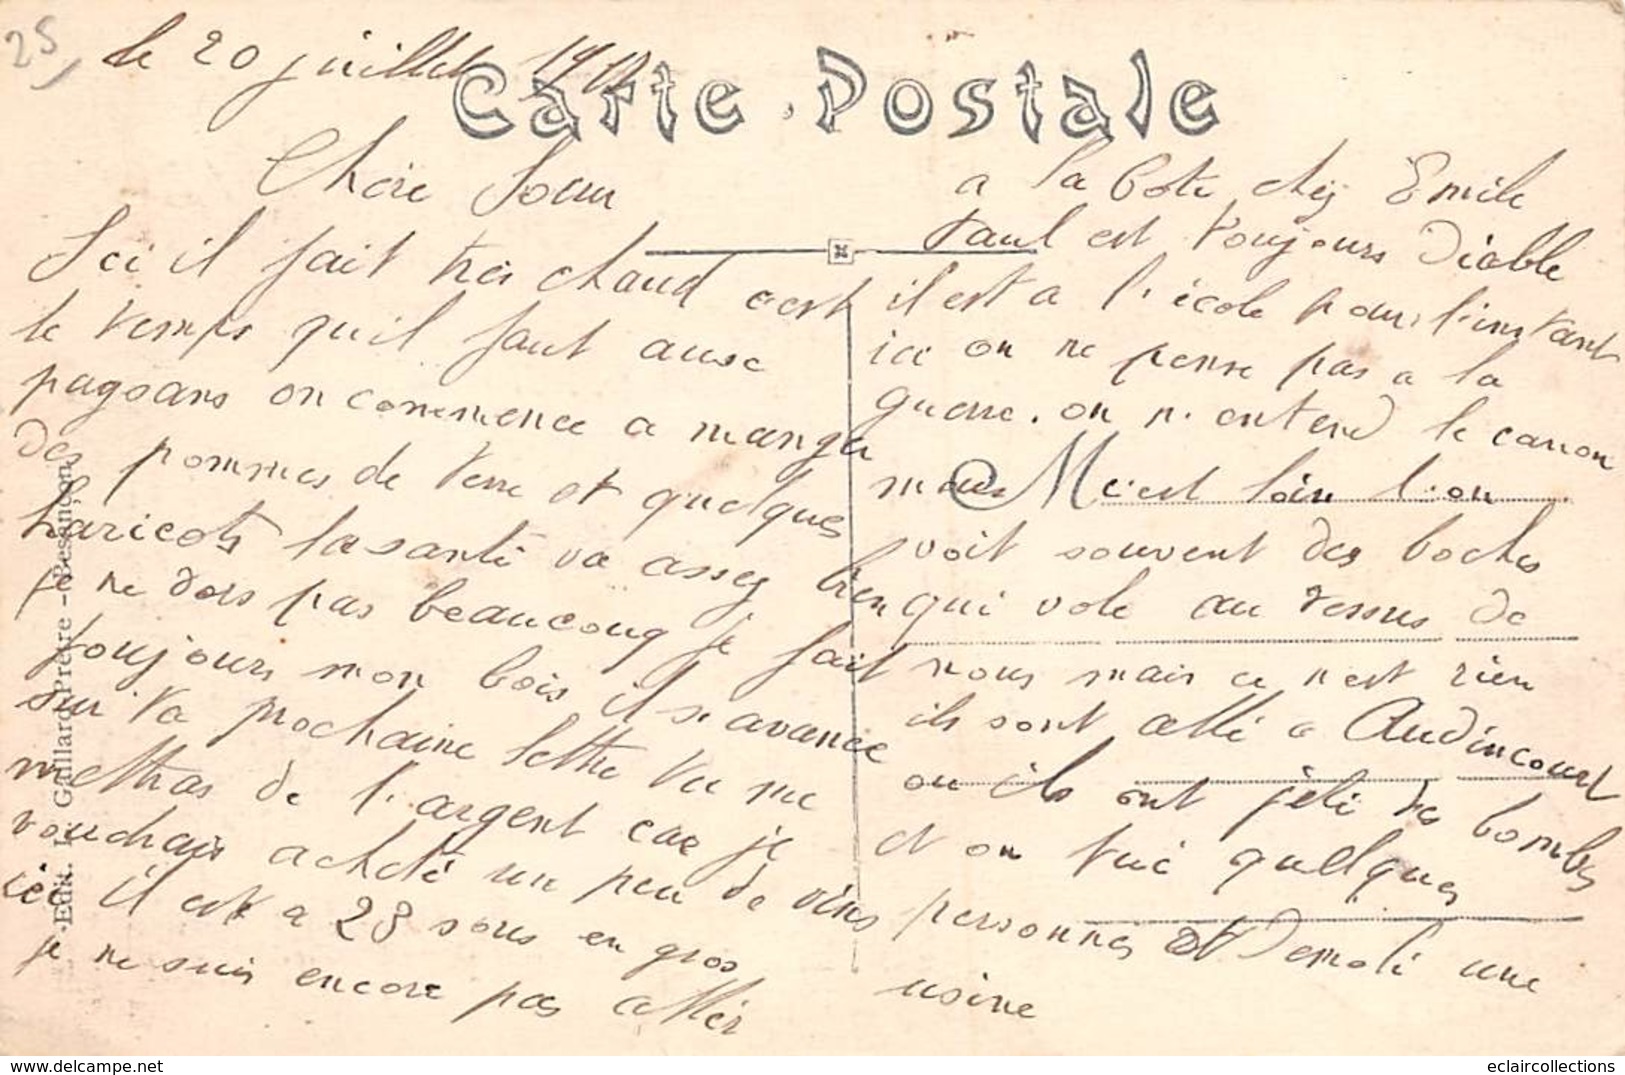 25
le 20 juillet
Carte Postale
Chère Soeur
Ici il fait très chaud cest
le temps quil faut auxe
paysans on commence a manger
des pommes de terre et quelques
haricots la santé va assez bien
je ne dors pas beaucoup je fait
toujours mon bois il se avance
sur ta prochaine lettre tu me
mettras de l'argent car je
voudrais acheté un peu de vins
ici il est a 28 sous en gros
je ne suis encore pas aller
a la Cote chez Emile
Paul est toujours Diable
il est a l'école pour l'instant
ici on ne pense pas a la
guerre. on n'entend le canon
mais M c'est loin l'on
voit souvent des boches
qui vole au dessus de
nous mais ce n'est rien
ils sont allé a Audincourt
ou ils ont jeté des bombes
et on tué quelques
personnes et Demoli une
usine
Edit. L. Gaillard-Prêtre - Besançon
eclaircollections